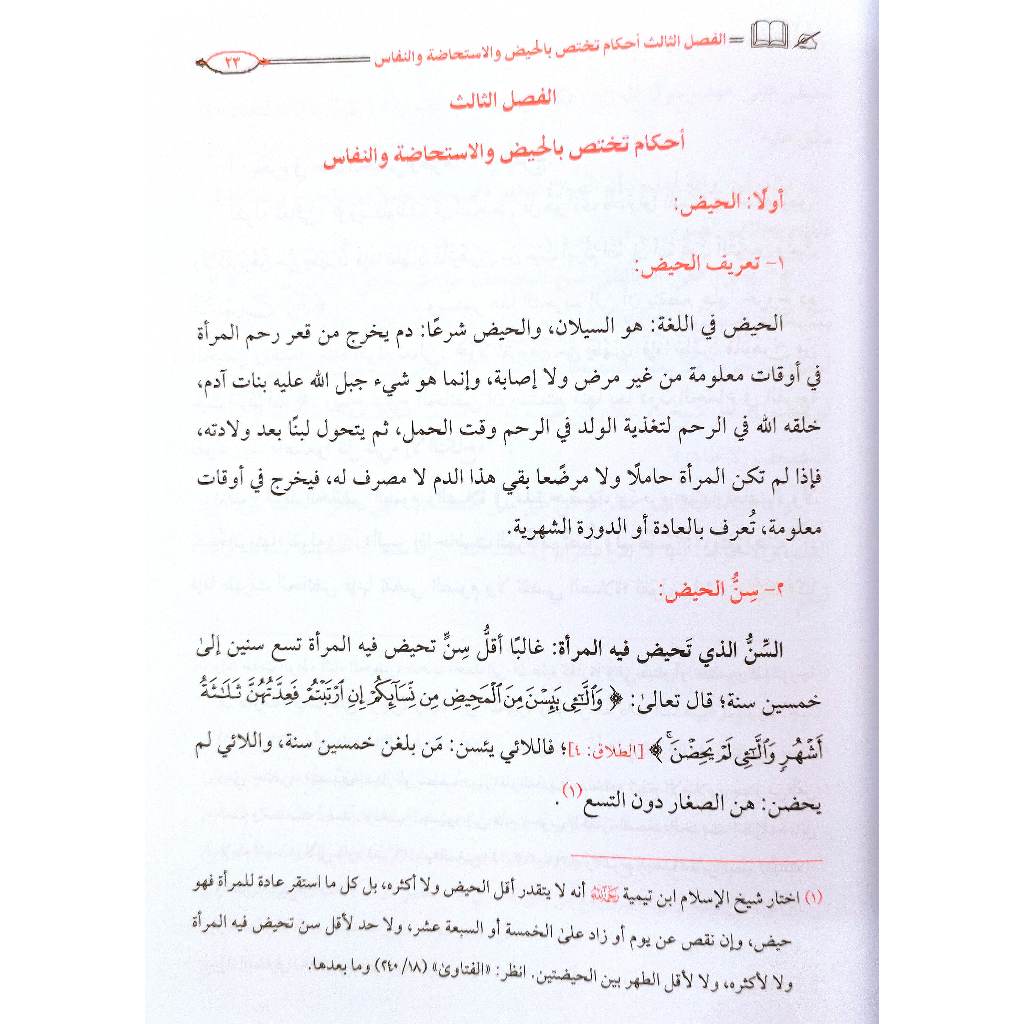 الفصل الثالث أحكام تختص بالحيض والاستحاضة والنفاس
٢٣
الفصل الثالث
أحكام تختص بالحيض والاستحاضة والنفاس
أولًا: الحيض:
١- تعريف الحيض:
الحيض في اللغة: هو السيلان، والحيض شرعًا: دم يخرج من قعر رحم المرأة
في أوقات معلومة من غير مرض ولا إصابة، وإنما هو شيء جبل الله عليه بنات آدم،
خلقه الله في الرحم لتغذية الولد في الرحم وقت الحمل، ثم يتحول لبنًا بعد ولادته،
فإذا لم تكن المرأة حاملًا ولا مرضعا بقي هذا الدم لا مصرف له، فيخرج في أوقات
معلومة، تُعرف بالعادة أو الدورة الشهرية.
٢- سِنُّ الحيض:
السِّنُّ الذي تَحيض فيه المرأة: غالبًا أقلُّ سِنٍّ تحيض فيه المرأة تسع سنين إلىٰ
خمسين سنة؛ قال تعالىٰ: ﴿ وَٱلَّـٰٓـِٔى يَئِسْنَ مِنَ ٱلْمَحِيضِ مِن نِّسَآئِكُمْ إِنِ ٱرْتَبْتُمْ فَعِدَّتُهُنَّ ثَلَـٰثَةُ
أَشْهُرٍ وَٱلَّـٰٓـِٔى لَمْ يَحِضْنَ ۚ ﴾ [الطلاق: ٤]؛ فاللائي يئسن: مَن بلغن خمسين سنة، واللائي لم
يحضن: هن الصغار دون التسع(١).
(١) اختار شيخ الإسلام ابن تيمية رحمه الله أنه لا يتقدر أقل الحيض ولا أكثره، بل كل ما استقر عادة للمرأة فهو
حيض، وإن نقص عن يوم أو زاد علىٰ الخمسة أو السبعة عشر، ولا حد لأقل سن تحيض فيه المرأة
ولا لأكثره، ولا لأقل الطهر بين الحيضتين. انظر: «الفتاوىٰ» (١٨/ ٢٤٠) وما بعدها.